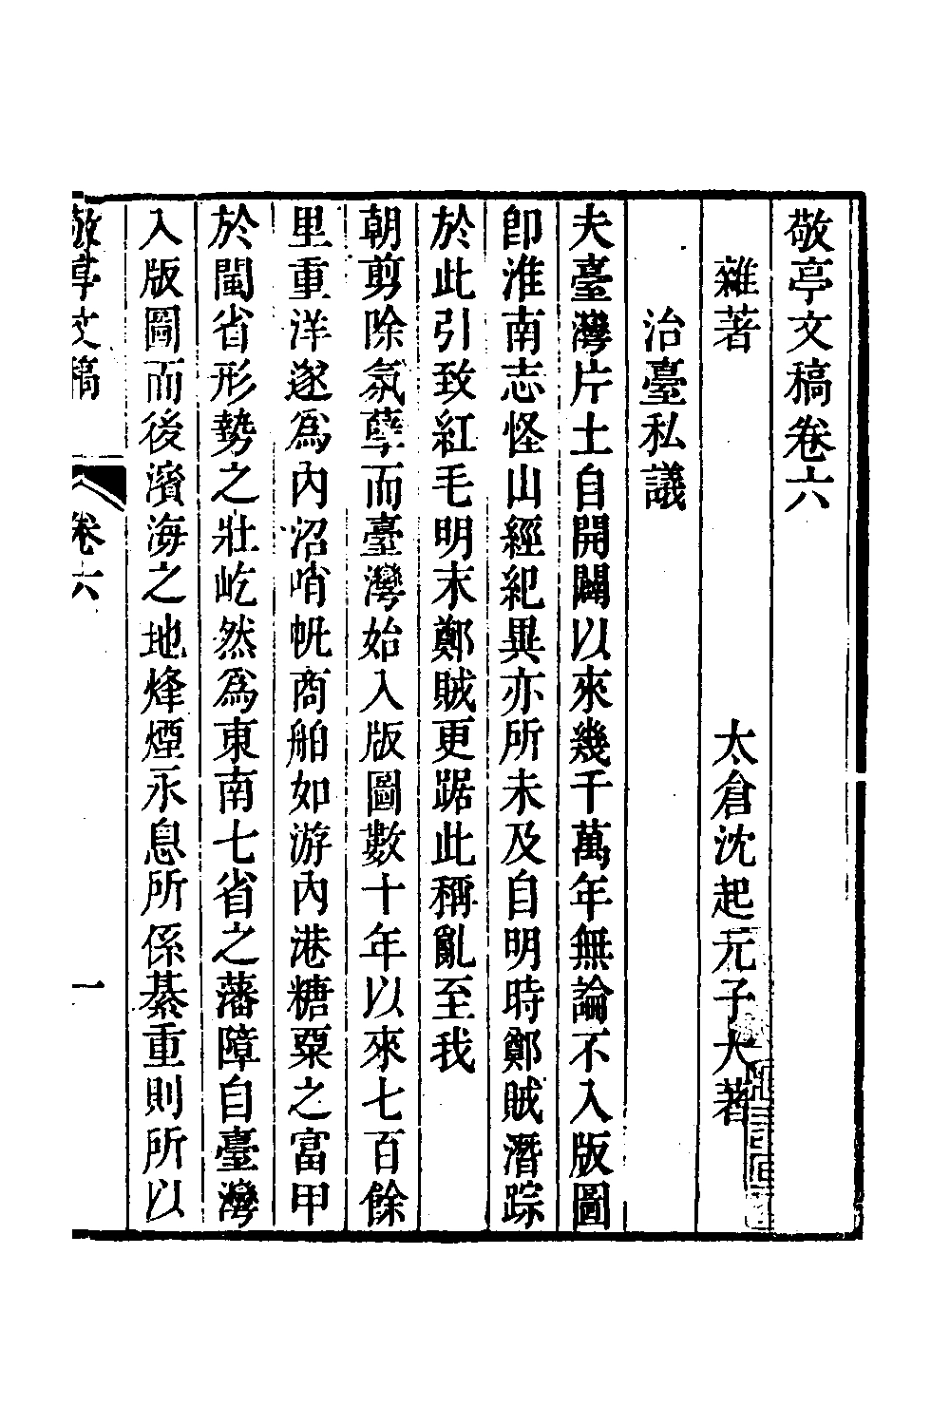 敬亭文稿卷六
雜著
太倉沈起元子大著
治臺私議
夫臺灣片土自開闢以來幾千萬年無論不入版圖
卽淮南志怪山經紀異亦所未及自明時鄭賊潛踪
於此引致紅毛明末鄭賊更踞此稱亂至我
朝剪除氛孽而臺灣始入版圖數十年以來七百餘
里重洋遂爲內沼哨帆商舶如游內港糖粟之富甲
於閩省形勢之壯屹然爲東南七省之藩障自臺灣
入版圖而後濱海之地烽煙永息所係綦重則所以
敬亭文稿
卷六
一